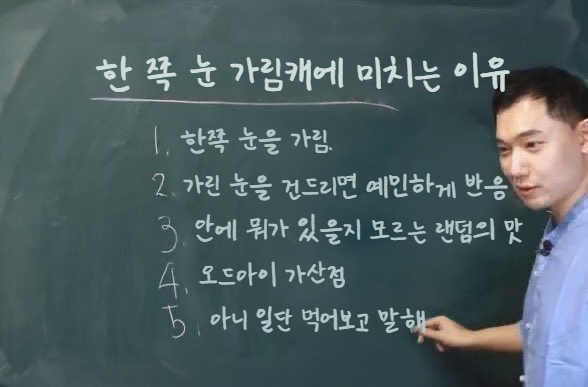 한 쪽 눈 가림캐에 미치는 이유
1. 한쪽 눈을 가림.
2. 가린 눈을 건드리면 예민하게 반응
3. 안에 뭐가 있을지 모르는 랜덤의 맛
4. 오드아이 가산점
5. 아니 일단 먹어보고 말해